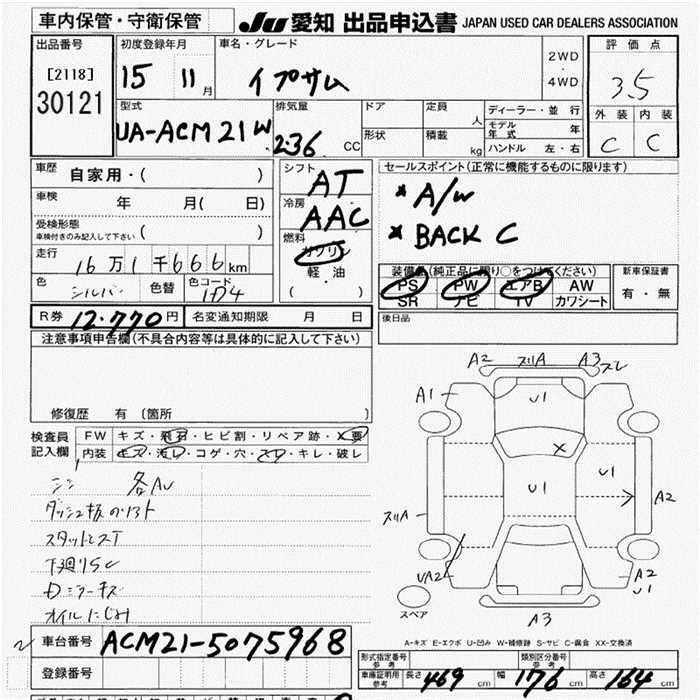 車内保管・守衛保管 JU 愛知 出品申込書 JAPAN USED CAR DEALERS ASSOCIATION
出品番号 初度登録年月 車名・グレード 評価点
[2118] 15 11月 イプサム 2WD・4WD 3.5
30121
型式 排気量 ドア 定員 人 ディーラー・並行 外装 内装
UA-ACM21W 2.36 CC 形状 積載 kg モデル年式 年 C C
ハンドル 左・右
車歴 自家用・( ) シフト AT セールスポイント(正常に機能するものに限ります)
車検 年 月( 日) 冷房 AAC * A/W
受検形態 * BACK C
車検付きのみ記入して下さい ( ) 燃料 ガソリン
走行 16万1千666km 軽・油 装備品(純正品に限り○をつけてください) 新車保証書
色 シルバー 色替 色コード 1D4 ( ) PS PW エアB AW 有・無
SR ナビ TV カワシート
R券 12.770円 名変通知期限 月 日 後日品
注意事項申告欄(不具合内容等は具体的に記入して下さい)
修復歴 有(箇所 )
検査員 FW キズ・飛石・ヒビ割・リペア跡・X要
記入欄 内装 キズ・汚レ・コゲ・穴・スレ・キレ・破レ
A2 スリA A3 スレ
A1 U1
X
U1 U1
スリA A2
UA2 A2 U1
スペア
A3
各AU
スタッドレスT
下廻りSC
Dミラーキズ
オイルにじみ
A-キズ E-エクボ U-凹み W-補修跡 S-サビ C-腐食 XX-交換済
車台番号 ACM21-5075968
登録番号
形式指定番号 参考 類別区分番号 参考
車庫証明用 参考 長さ 469cm 幅 176cm 高さ 164cm